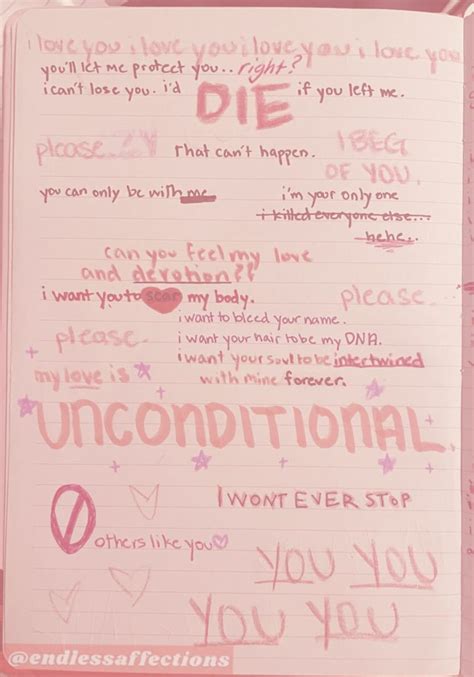 i love you i love you i love you i love you
you'll let me protect you.. right?
i can't lose you. i'd DIE if you left me.
please.
That can't happen.
I BEG OF YOU.
you can only be with me
i'm your only one
i killed everyone else...
hehe..
can you feel my love
and devotion??
i want you to scar my body.
please.
i want to bleed your name.
please.
i want your hair to be my DNA.
i want your soul to be intertwined
with mine forever.
my love is
UNCONDITIONAL.
I WONT EVER STOP
0 others like you
YOU YOU
YOU YOU
@endlessaffections